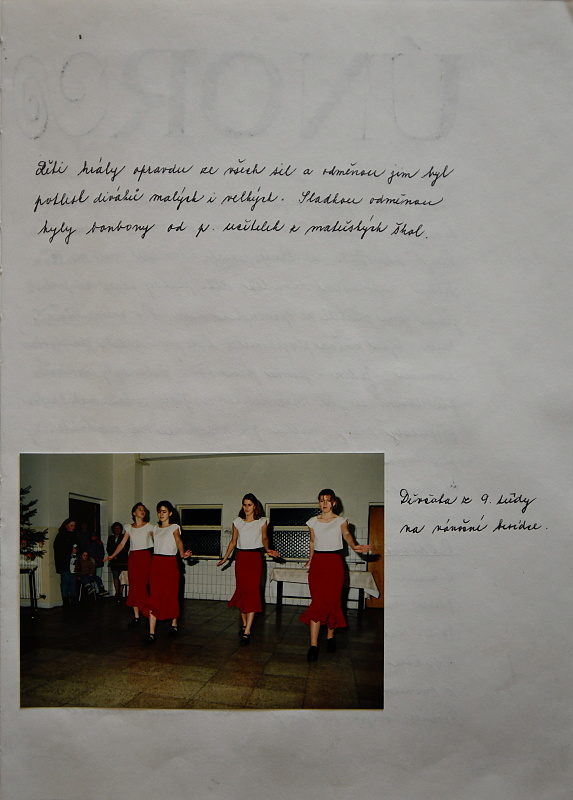 Děti hrály opravdu ze všech sil a odměnou jim byl
potlesk diváků malých i velkých. Sladkou odměnou
byly bonbony od p. učitelek z mateřských škol.
Děvčata z 9. třídy
na vánoční besídce.
ÚNOR